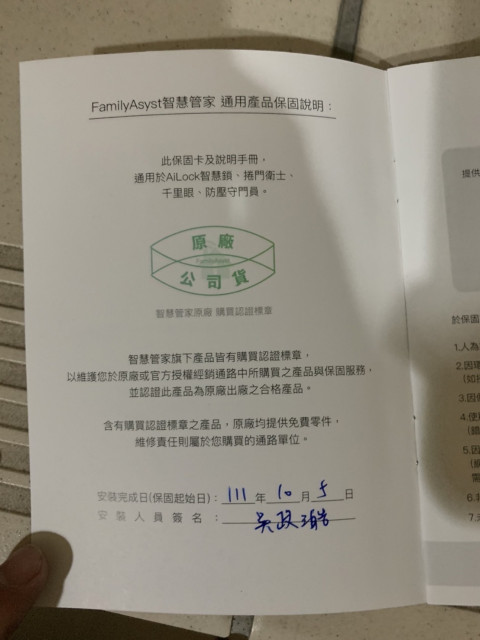 FamilyAsyst智慧管家 通用產品保固說明：
此保固卡及說明手冊，
通用於AiLock智慧鎖、捲門衛士、
千里眼、防壓守門員。
原廠
FamilyAsyst
公司貨
智慧管家原廠 購買認證標章
智慧管家旗下產品皆有購買認證標章，
以維護您於原廠或官方授權經銷通路中所購買之產品與保固服務，
並認證此產品為原廠出廠之合格產品。
含有購買認證標章之產品，原廠均提供免費零件，
維修責任則屬於您購買的通路單位。
安裝完成日(保固起始日)：111年10月5日
安裝人員簽名：吳政
提供
於保固
1.人為
2.因環
3.因
4.使
5.因
6.
7.